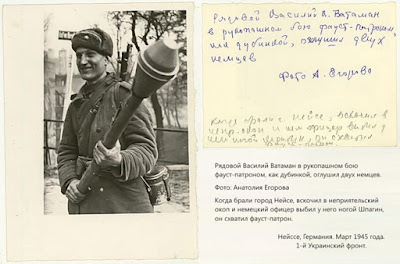 Рядовой Василий В. Ватаман
в рукопашном бою фауст-патроном,
как дубинкой, оглушил двух
немцев
Фото А. Егорова
Когда брали г. Нейсе, вскочил в
и нем. офицер выбил у
него ногой он схватил
фауст-патрон.
Рядовой Василий Ватаман в рукопашном бою
фауст-патроном, как дубинкой, оглушил двух немцев.
Фото: Анатолия Егорова
Когда брали город Нейсе, вскочил в неприятельский
окоп и немецкий офицер выбил у него ногой Шпагин,
он схватил фауст-патрон.
Нейссе, Германия. Март 1945 года.
1-й Украинский фронт.